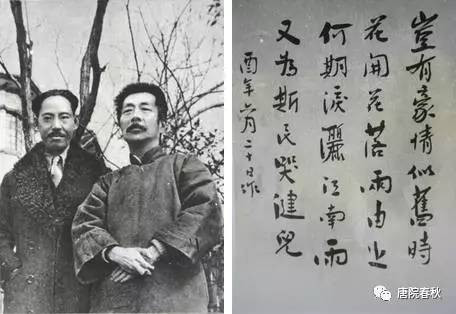 豈有豪情似舊時
花開花落兩由之
何期淚灑江南雨
又為斯民哭健兒
酉年六月二十日作
唐院春秋